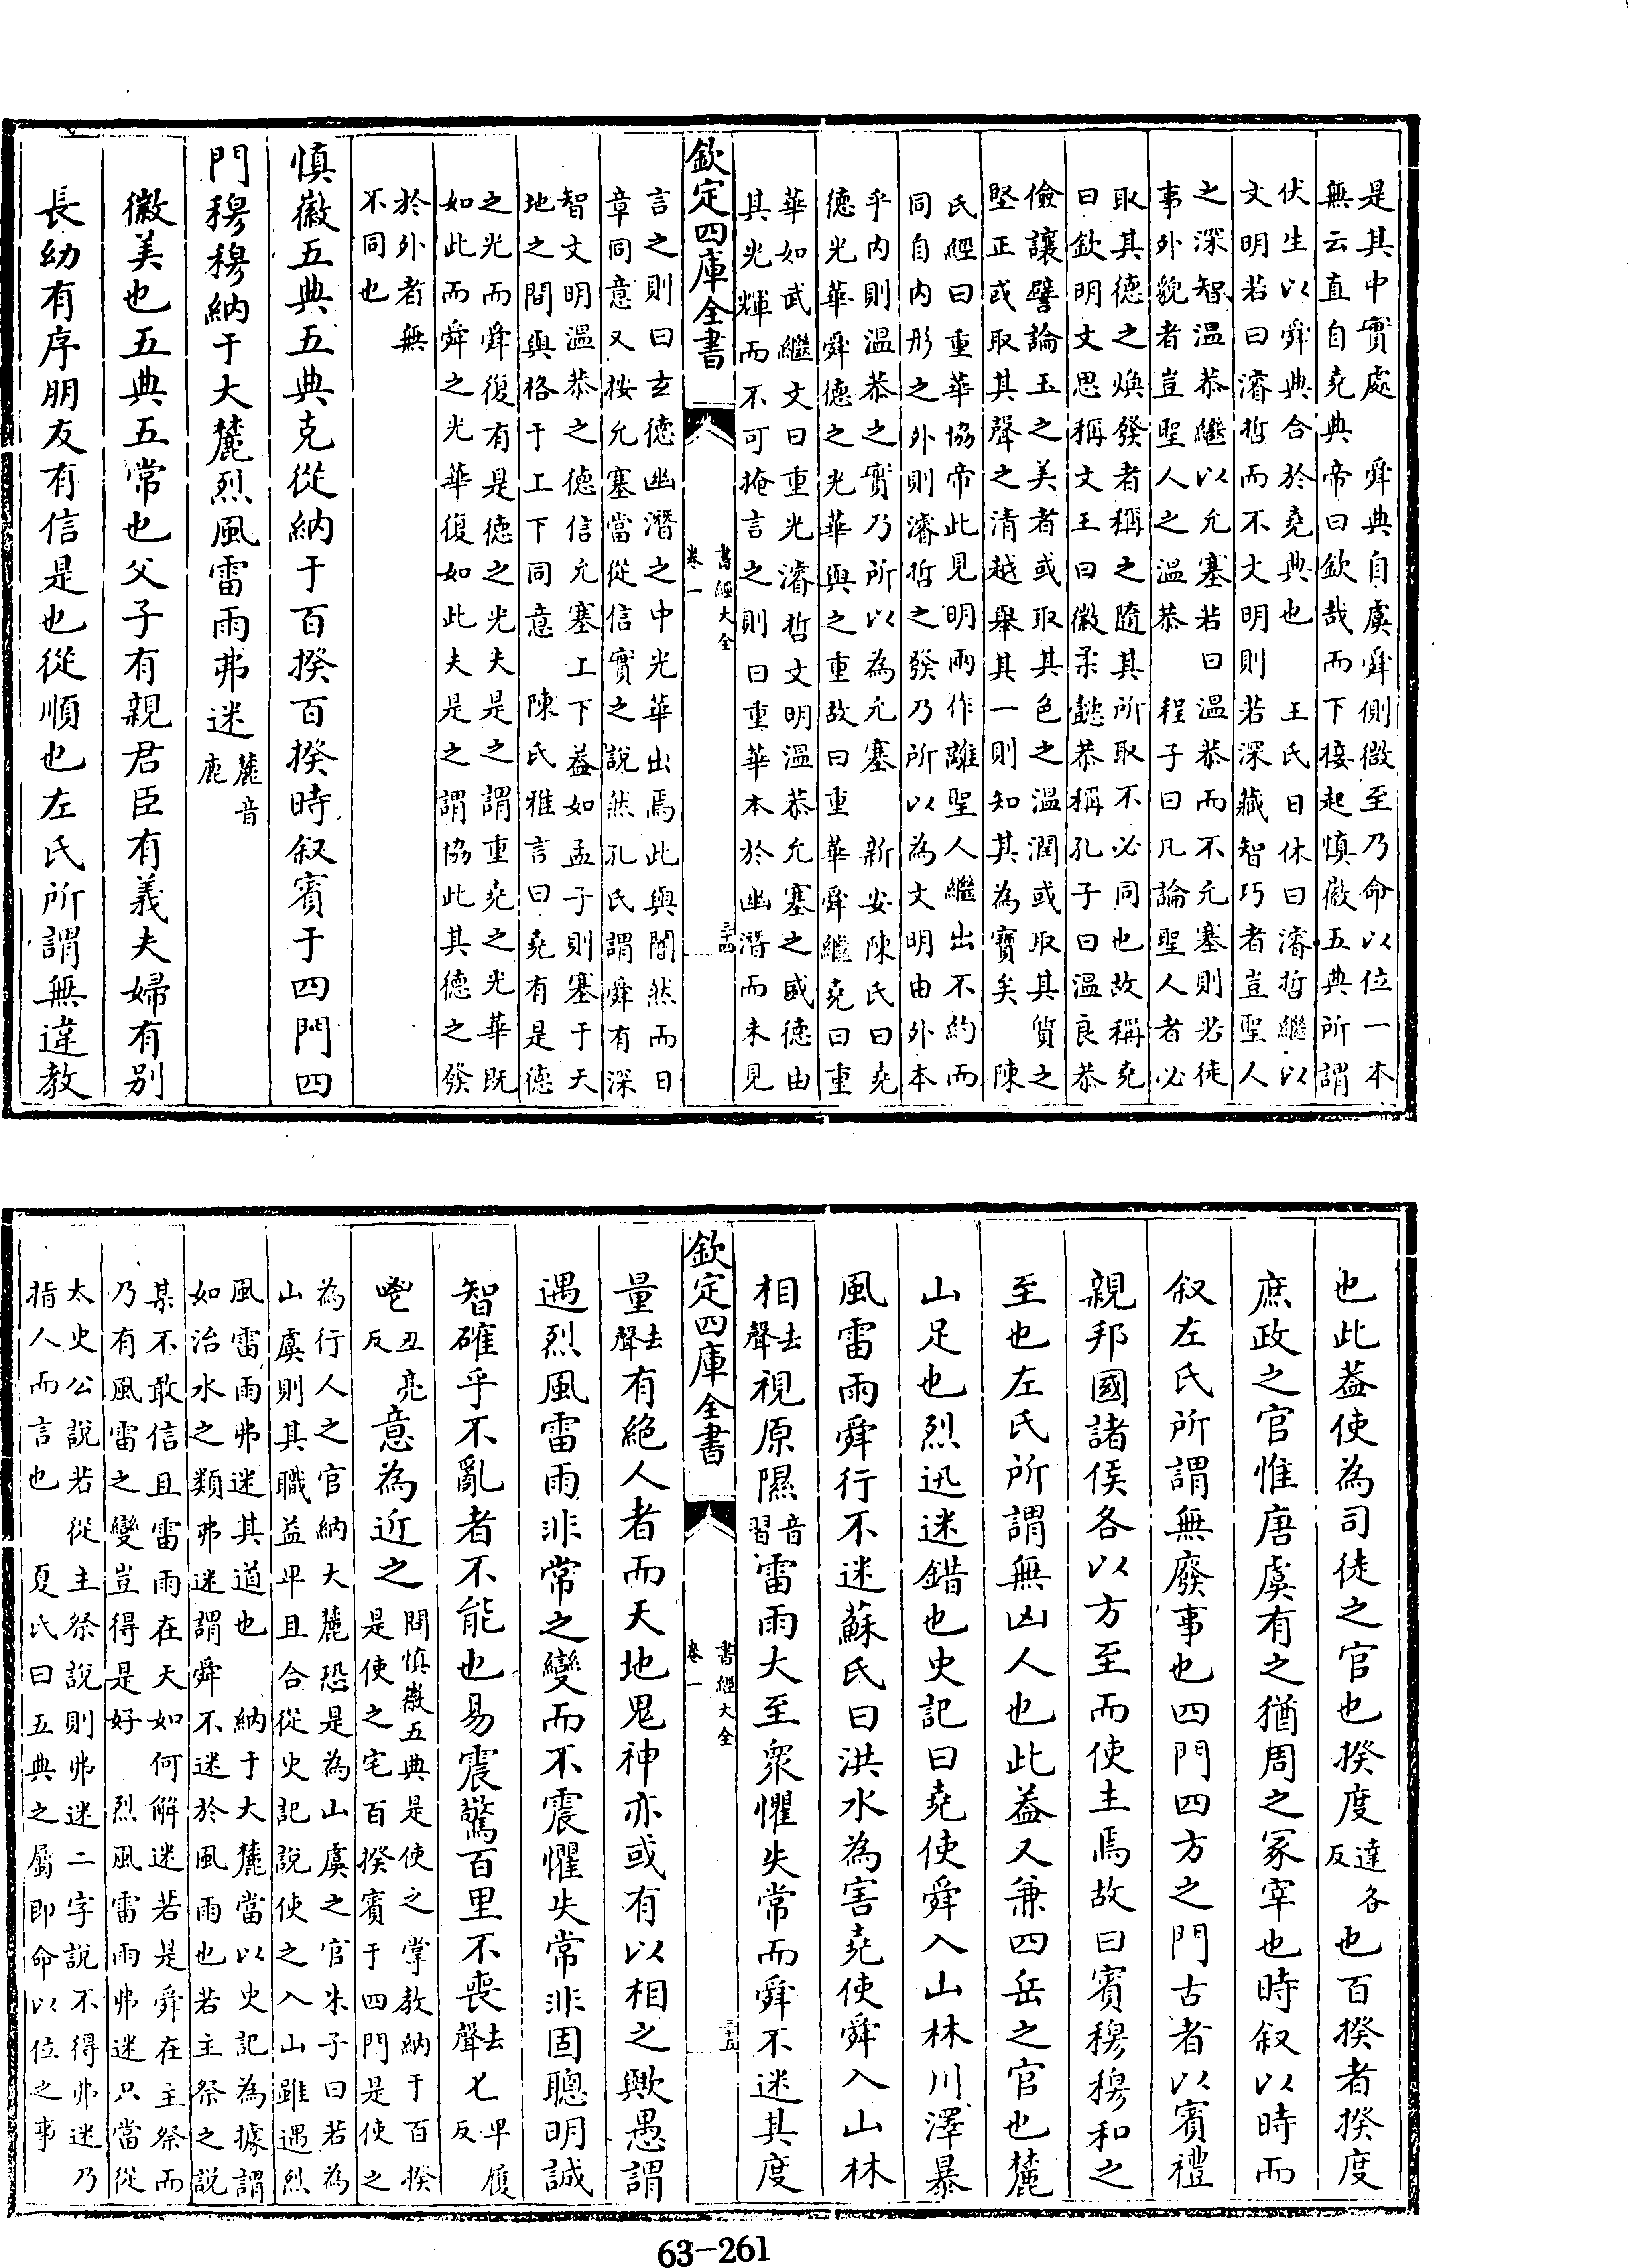 是其中實處　舜典自虞舜側微至乃命以位一本
無云直自堯典帝曰欽哉而下接起慎徽五典所謂
伏生以舜典合於堯典也　王氏日休曰濬哲繼以
文明若曰濬哲而不文明則若深藏智巧者豈聖人
之深智溫恭繼以允塞若曰溫恭而不允塞則若徒
事外貌者豈聖人之溫恭　程子曰凡論聖人者必
取其德之煥發者稱之隨其所取不必同也故稱堯
曰欽明文思稱文王曰徽柔懿恭稱孔子曰溫良恭
儉讓譬論玉之美者或取其色之溫潤或取其質之
堅正或取其聲之清越舉其一則知其為寶矣　陳
氏經曰重華協帝此見明兩作離聖人繼出不約而
同自内形之外則濬哲之發乃所以為文明由外本
乎内則溫恭之實乃所以為允塞　新安陳氏曰堯
德光華舜德之光華與之重故曰重華舜繼堯曰重
華如武繼文曰重光濬哲文明溫恭允塞之盛德由
其光輝而不可掩言之則曰重華本於幽潛而未見
欽定四庫全書
書經大全
卷一
三十四
言之則曰玄德幽潛之中光華出焉此與闇然而日
章同意又按允塞當從信實之說然孔氏謂舜有深
智文明溫恭之德信允塞上下葢如孟子則塞于天
地之間與格于上下同意　陳氏雅言曰堯有是德
之光而舜復有是德之光夫是之謂重堯之光華既
如此而舜之光華復如此夫是之謂協此其德之發
於外者無
不同也
慎徽五典五典克從納于百揆百揆時叙賓于四門四
門穆穆納于大麓烈風雷雨弗迷麓音鹿
徽美也五典五常也父子有親君臣有義夫婦有别
長幼有序朋友有信是也從順也左氏所謂無違教
也此葢使為司徒之官也揆度達各反也百揆者揆度
庶政之官惟唐虞有之猶周之冢宰也時叙以時而
叙左氏所謂無廢事也四門四方之門古者以賓禮
親邦國諸侯各以方至而使主焉故曰賓穆穆和之
至也左氏所謂無凶人也此葢又兼四岳之官也麓
山足也烈迅迷錯也史記曰堯使舜入山林川澤暴
風雷雨舜行不迷蘇氏曰洪水為害堯使舜入山林
相去聲視原隰音習雷雨大至衆懼失常而舜不迷其度
欽定四庫全書
書經大全
卷一
三十五
量去聲有絶人者而天地鬼神亦或有以相之歟愚謂
遇烈風雷雨非常之變而不震懼失常非固聰明誠
智確乎不亂者不能也易震驚百里不喪去聲匕卑履反
鬯丑亮反意為近之
問慎徽五典是使之掌教納于百揆
是使之宅百揆賓于四門是使之
為行人之官納大麓恐是為山虞之官朱子曰若為
山虞則其職益卑且合從史記說使之入山雖遇烈
風雷雨弗迷其道也　納于大麓當以史記為據謂
如治水之類弗迷謂舜不迷於風雨也若主祭之說
某不敢信且雷雨在天如何解迷若是舜在主祭而
乃有風雷之變豈得是好　烈風雷雨弗迷只當從
太史公說若從主祭說則弗迷二字說不得弗迷乃
指人而言也　夏氏曰五典之屬即命以位之事
63-261